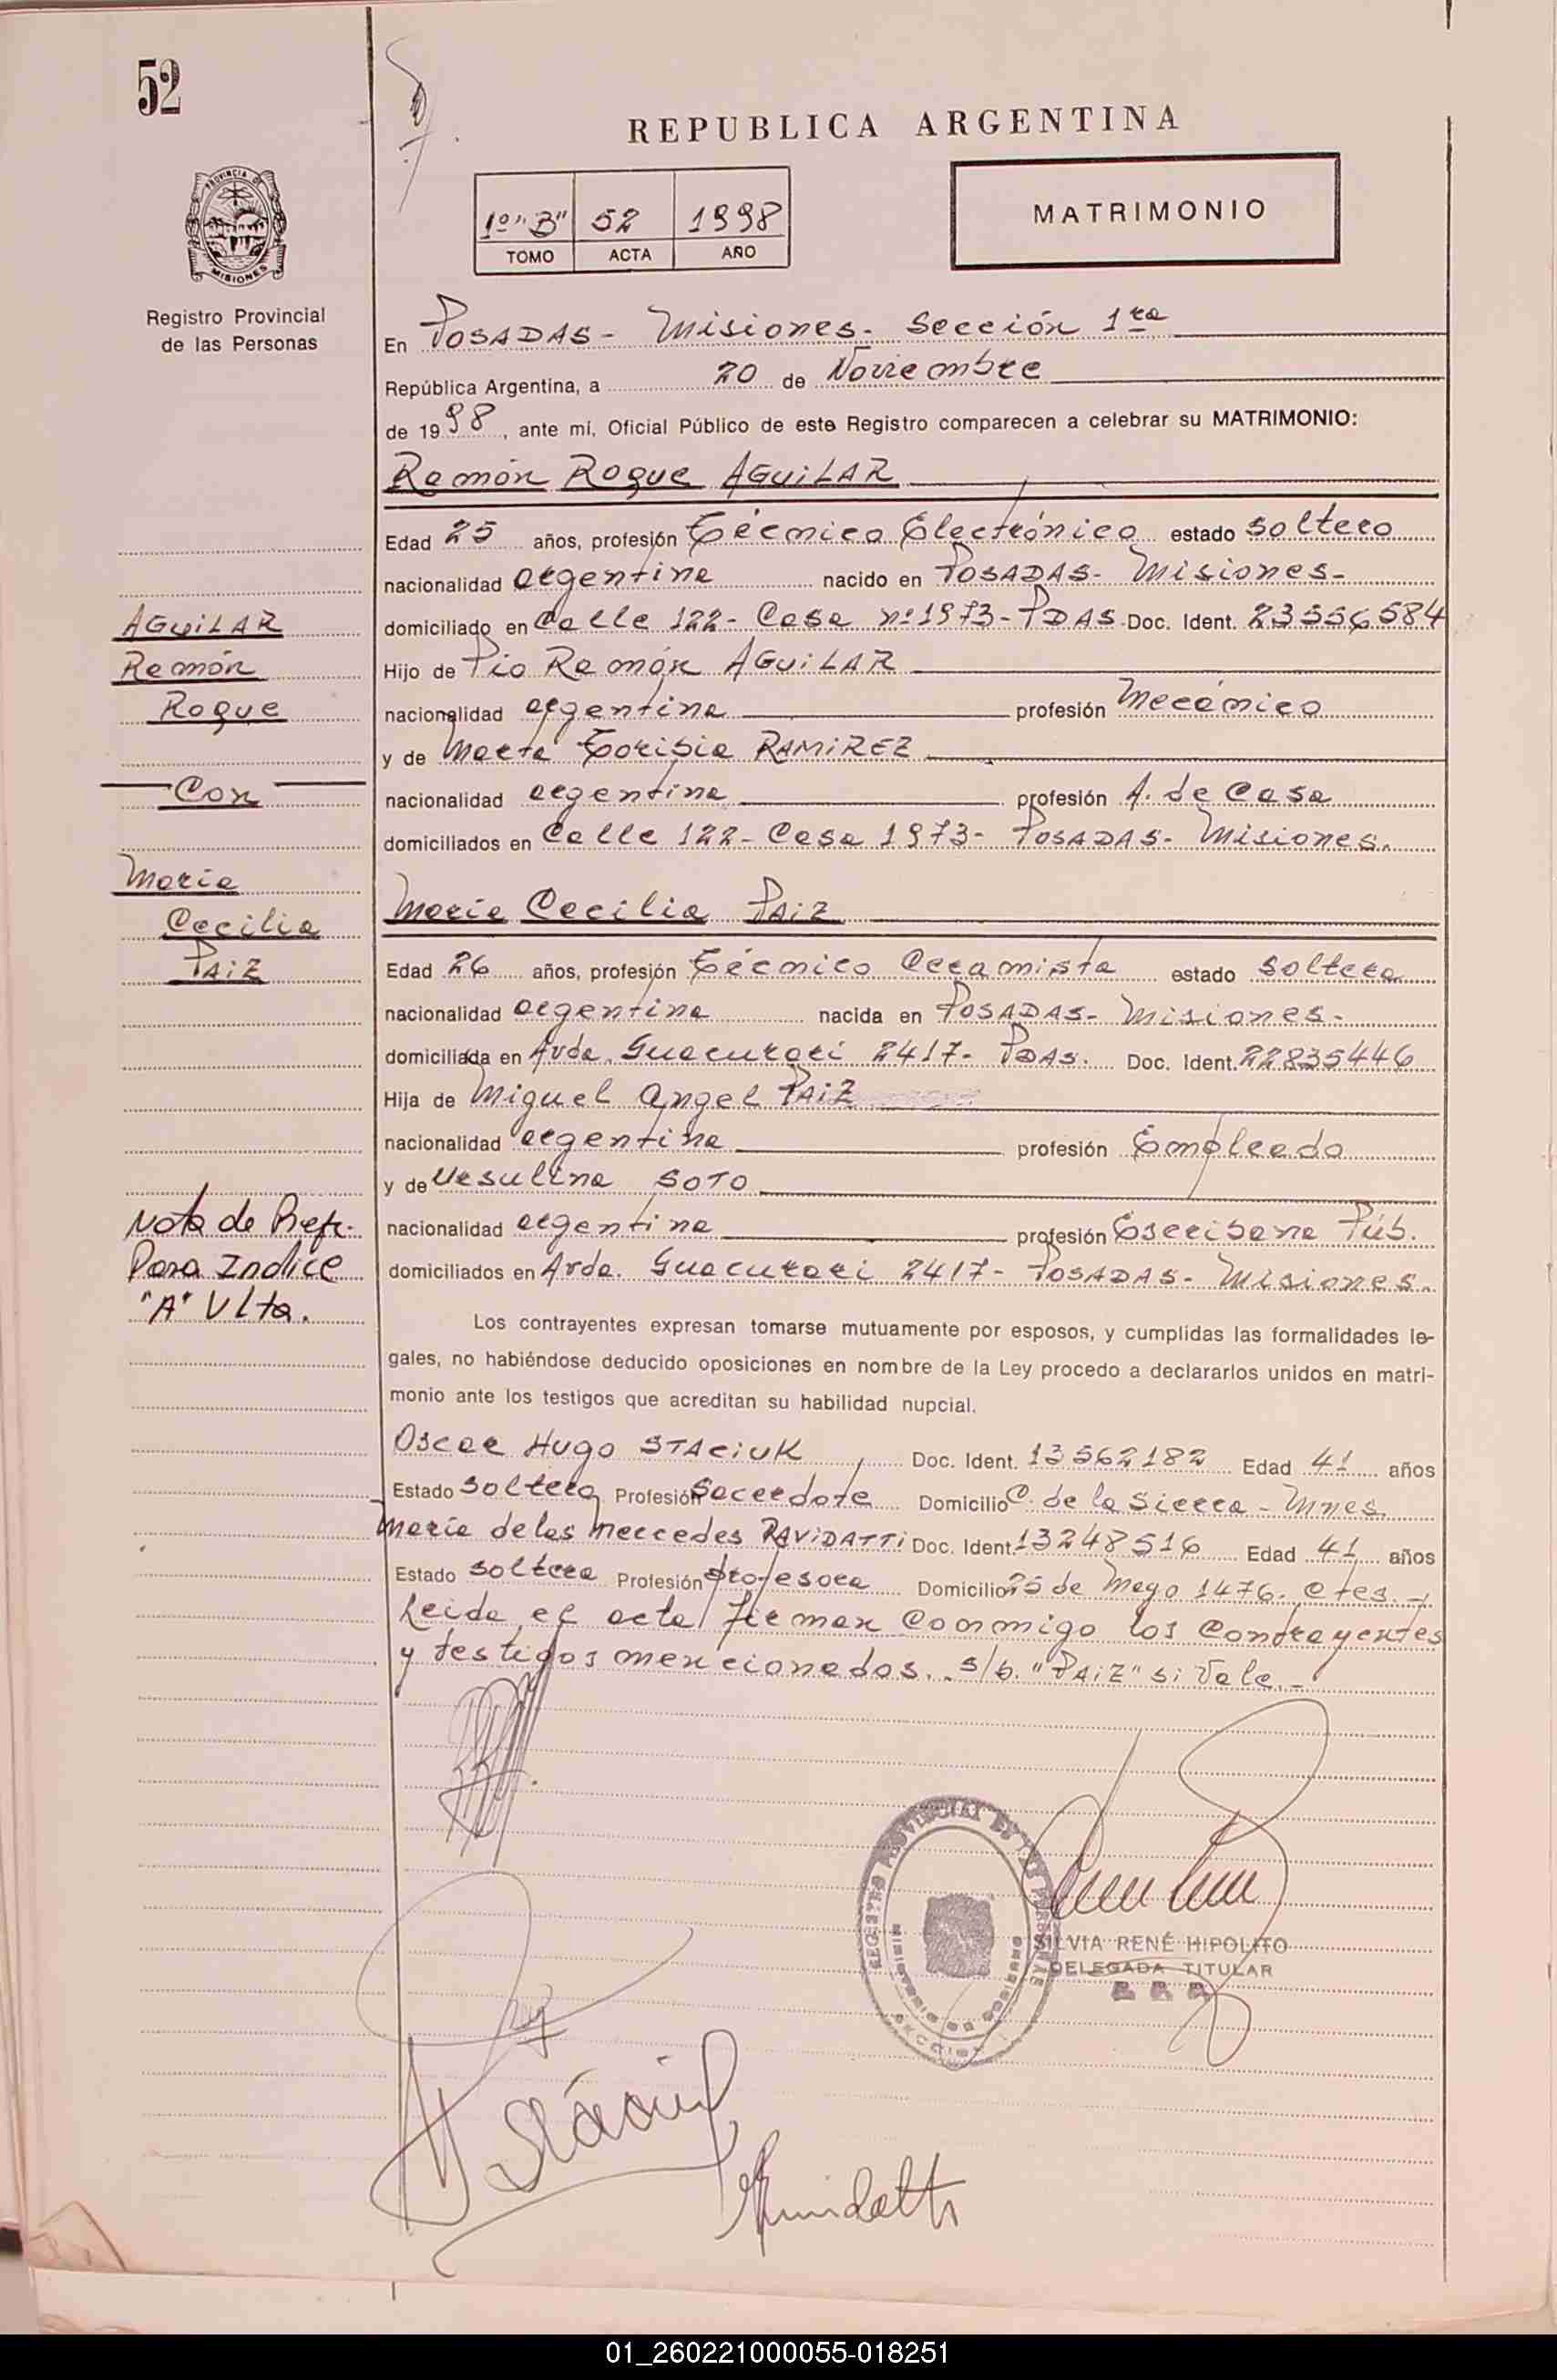 52
REPUBLICA ARGENTINA
1º "B" 52 1998
TOMO ACTA AÑO
MATRIMONIO
PROVINCIA DE
MISIONES
Registro Provincial
de las Personas
En POSADAS - Misiones - Sección 1ra
República Argentina, a 20 de Noviembre
de 1998, ante mí, Oficial Público de este Registro comparecen a celebrar su MATRIMONIO:
Ramón Roque AGUILAR
Edad 25 años, profesión Técnico Electrónico estado soltero
nacionalidad argentina nacido en POSADAS - Misiones -
domiciliado en Calle 122 - Casa nº 1973 - PDAS Doc. Ident. 23556584
Hijo de Pio Ramón AGUILAR
nacionalidad argentina profesión Mecánico
y de Marta Toribia RAMIREZ
nacionalidad argentina profesión A. de Casa
domiciliados en Calle 122 - Casa 1973 - POSADAS - Misiones.
AGUILAR
Ramón
Roque
Con
María
Cecilia
PAIZ
María Cecilia PAIZ
Edad 26 años, profesión Técnico Ceramista estado soltera
nacionalidad argentina nacida en POSADAS - Misiones -
domiciliada en Avda. Guacurari 2417 - PDAS. Doc. Ident. 22835446
Hija de Miguel Angel PAIZ
nacionalidad argentina profesión Empleado
y de Ursulina SOTO
nacionalidad argentina profesión Escribana Púb.
domiciliados en Avda. Guacurari 2417 - POSADAS - Misiones.
Nota de Refr.
Para Indice
"A" Vlta.
Los contrayentes expresan tomarse mutuamente por esposos, y cumplidas las formalidades le-
gales, no habiéndose deducido oposiciones en nombre de la Ley procedo a declararlos unidos en matri-
monio ante los testigos que acreditan su habilidad nupcial.
Oscar Hugo STACIUK Doc. Ident. 13562182 Edad 41 años
Estado soltero Profesión Sacerdote Domicilio C. de la Sierra - Mnes.
María de las Mercedes RAVIDATTI Doc. Ident. 13248516 Edad 41 años
Estado soltera Profesión profesora Domicilio 25 de Mayo 1476. Ctes. -
Leida el acta firman Conmigo los Contrayentes
y testigos mencionados. s/b. "PAIZ" si Vale. -
REGISTRO PROVINCIAL DE LAS PERSONAS
SILVIA RENÉ HIPOLITO
DELEGADA TITULAR
01_260221000055-018251